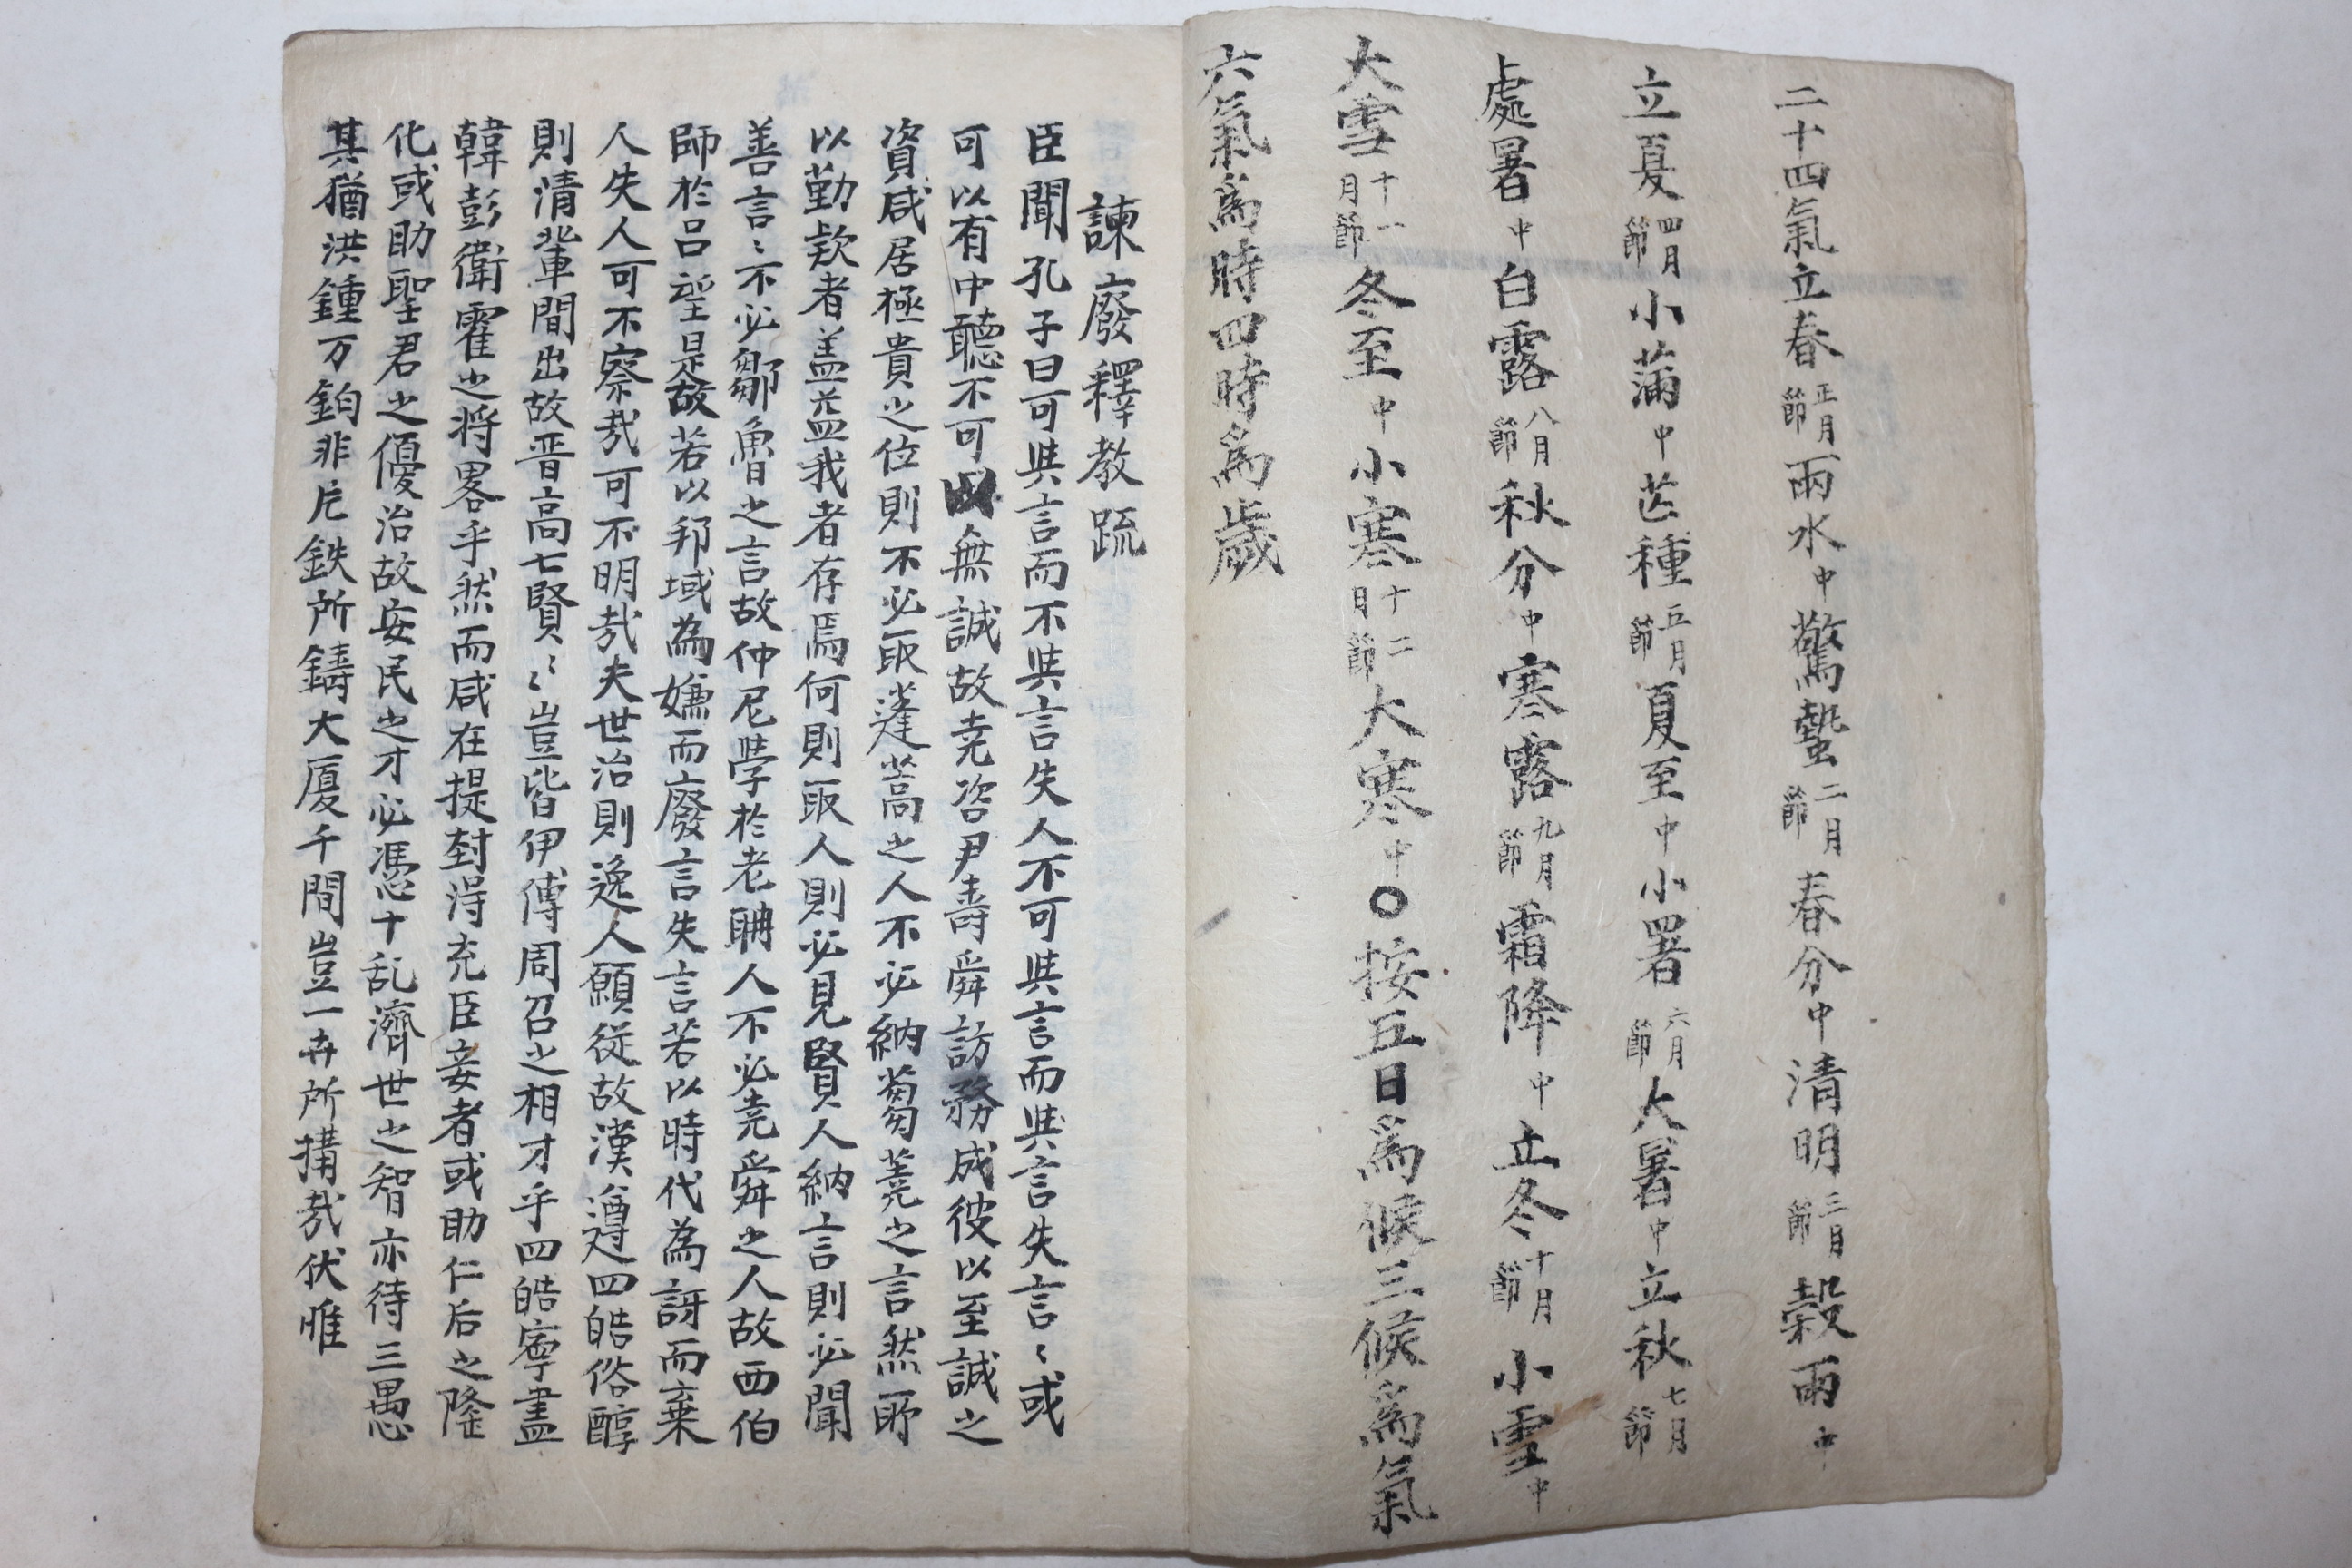 二十四氣立春正月節雨水中驚蟄二月節春分中清明三月節穀雨中
立夏四月節小蒲中芒種五月節夏至中小暑六月節大暑中立秋七月節
處暑中白露八月節秋分中寒露九月節霜降中立冬十月節小雪中
大雪十一月節冬至中小寒十二月節大寒中○按五日爲候三候爲氣
六氣爲時四時爲歲
諫廢釋教䟽
臣聞孔子曰可與言而不與言失人不可與言而與言失言〻或
可以有中聽不可無誠故堯咨尹壽舜訪務成彼以至誠之
資咸居極貴之位則不必取蓬蒿之人不必納蒭蕘之言然所
以勤欵者盖益我者存焉何則取人則必見賢人納言則必聞
善言〻不必鄒魯之言故仲尼學於老聃人不必堯舜之人故西伯
師於呂望是故若以邦域為嫌而廢言失言若以時代為訝而棄
人失人可不察哉可不明哉夫世治則逸人願從故漢遵四皓俗醇
則清輩間出故晋高七賢〻豈皆伊傅周召之相才乎四皓寧盡
韓彭衛霍之將畧乎然而咸在提封得充臣妾者或助仁后之隆
化或助聖君之優治故安民之才必憑十乱濟世之智亦待三愚
其猶洪鍾万鈞非片鉄所鑄大厦千間豈一卉所搆哉伏惟